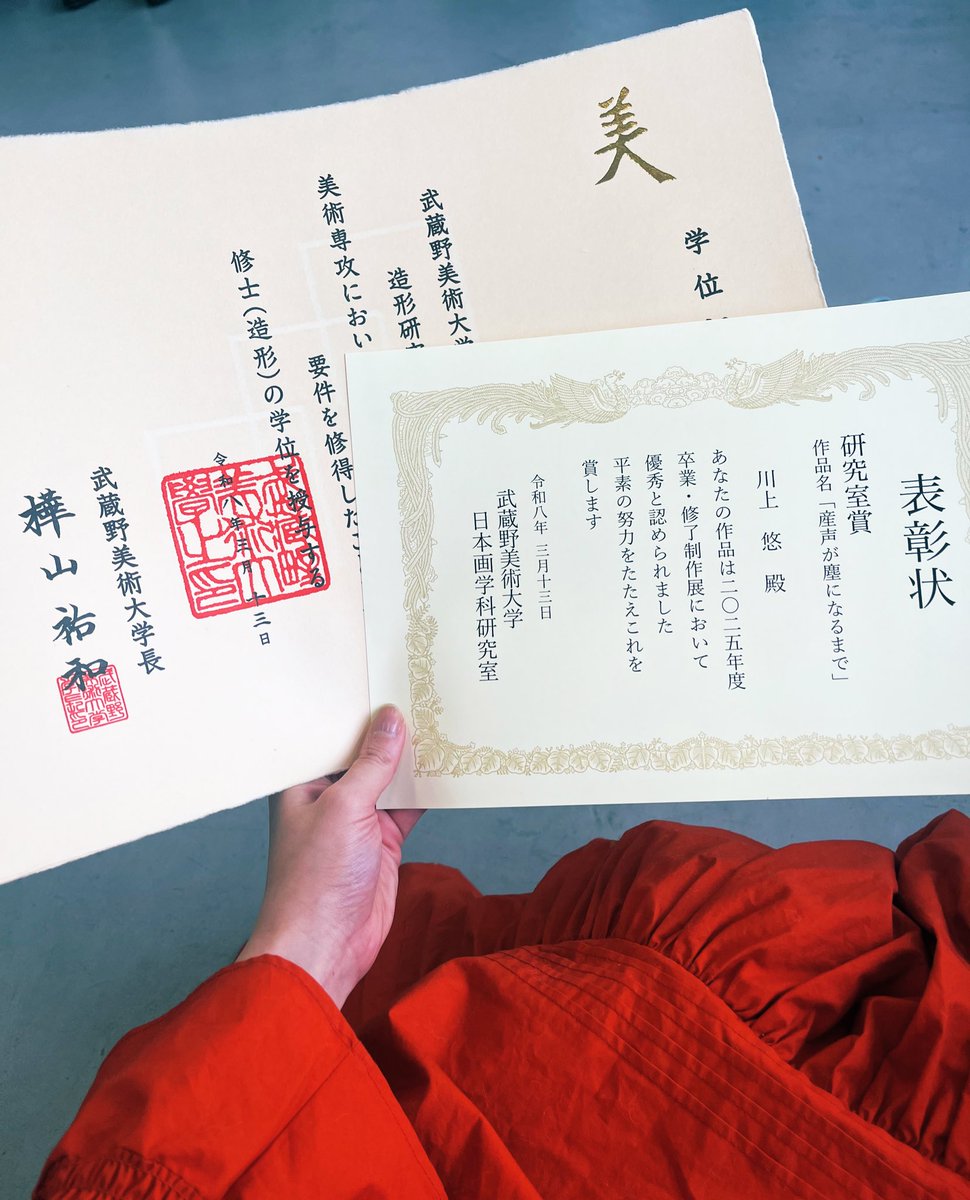 美
学位
武蔵野美術大学
造形研究
美術専攻におい
要件を修得したこ
修士(造形)の学位を授与する
令和八年三月十三日
武蔵野美術大学長
樺山祐和
表彰状
研究室賞
作品名「産声が塵になるまで」
川上 悠 殿
あなたの作品は二〇二五年度
卒業・修了制作展において
優秀と認められました
平素の努力をたたえこれを
賞します
令和八年 三月十三日
武蔵野美術大学
日本画学科研究室